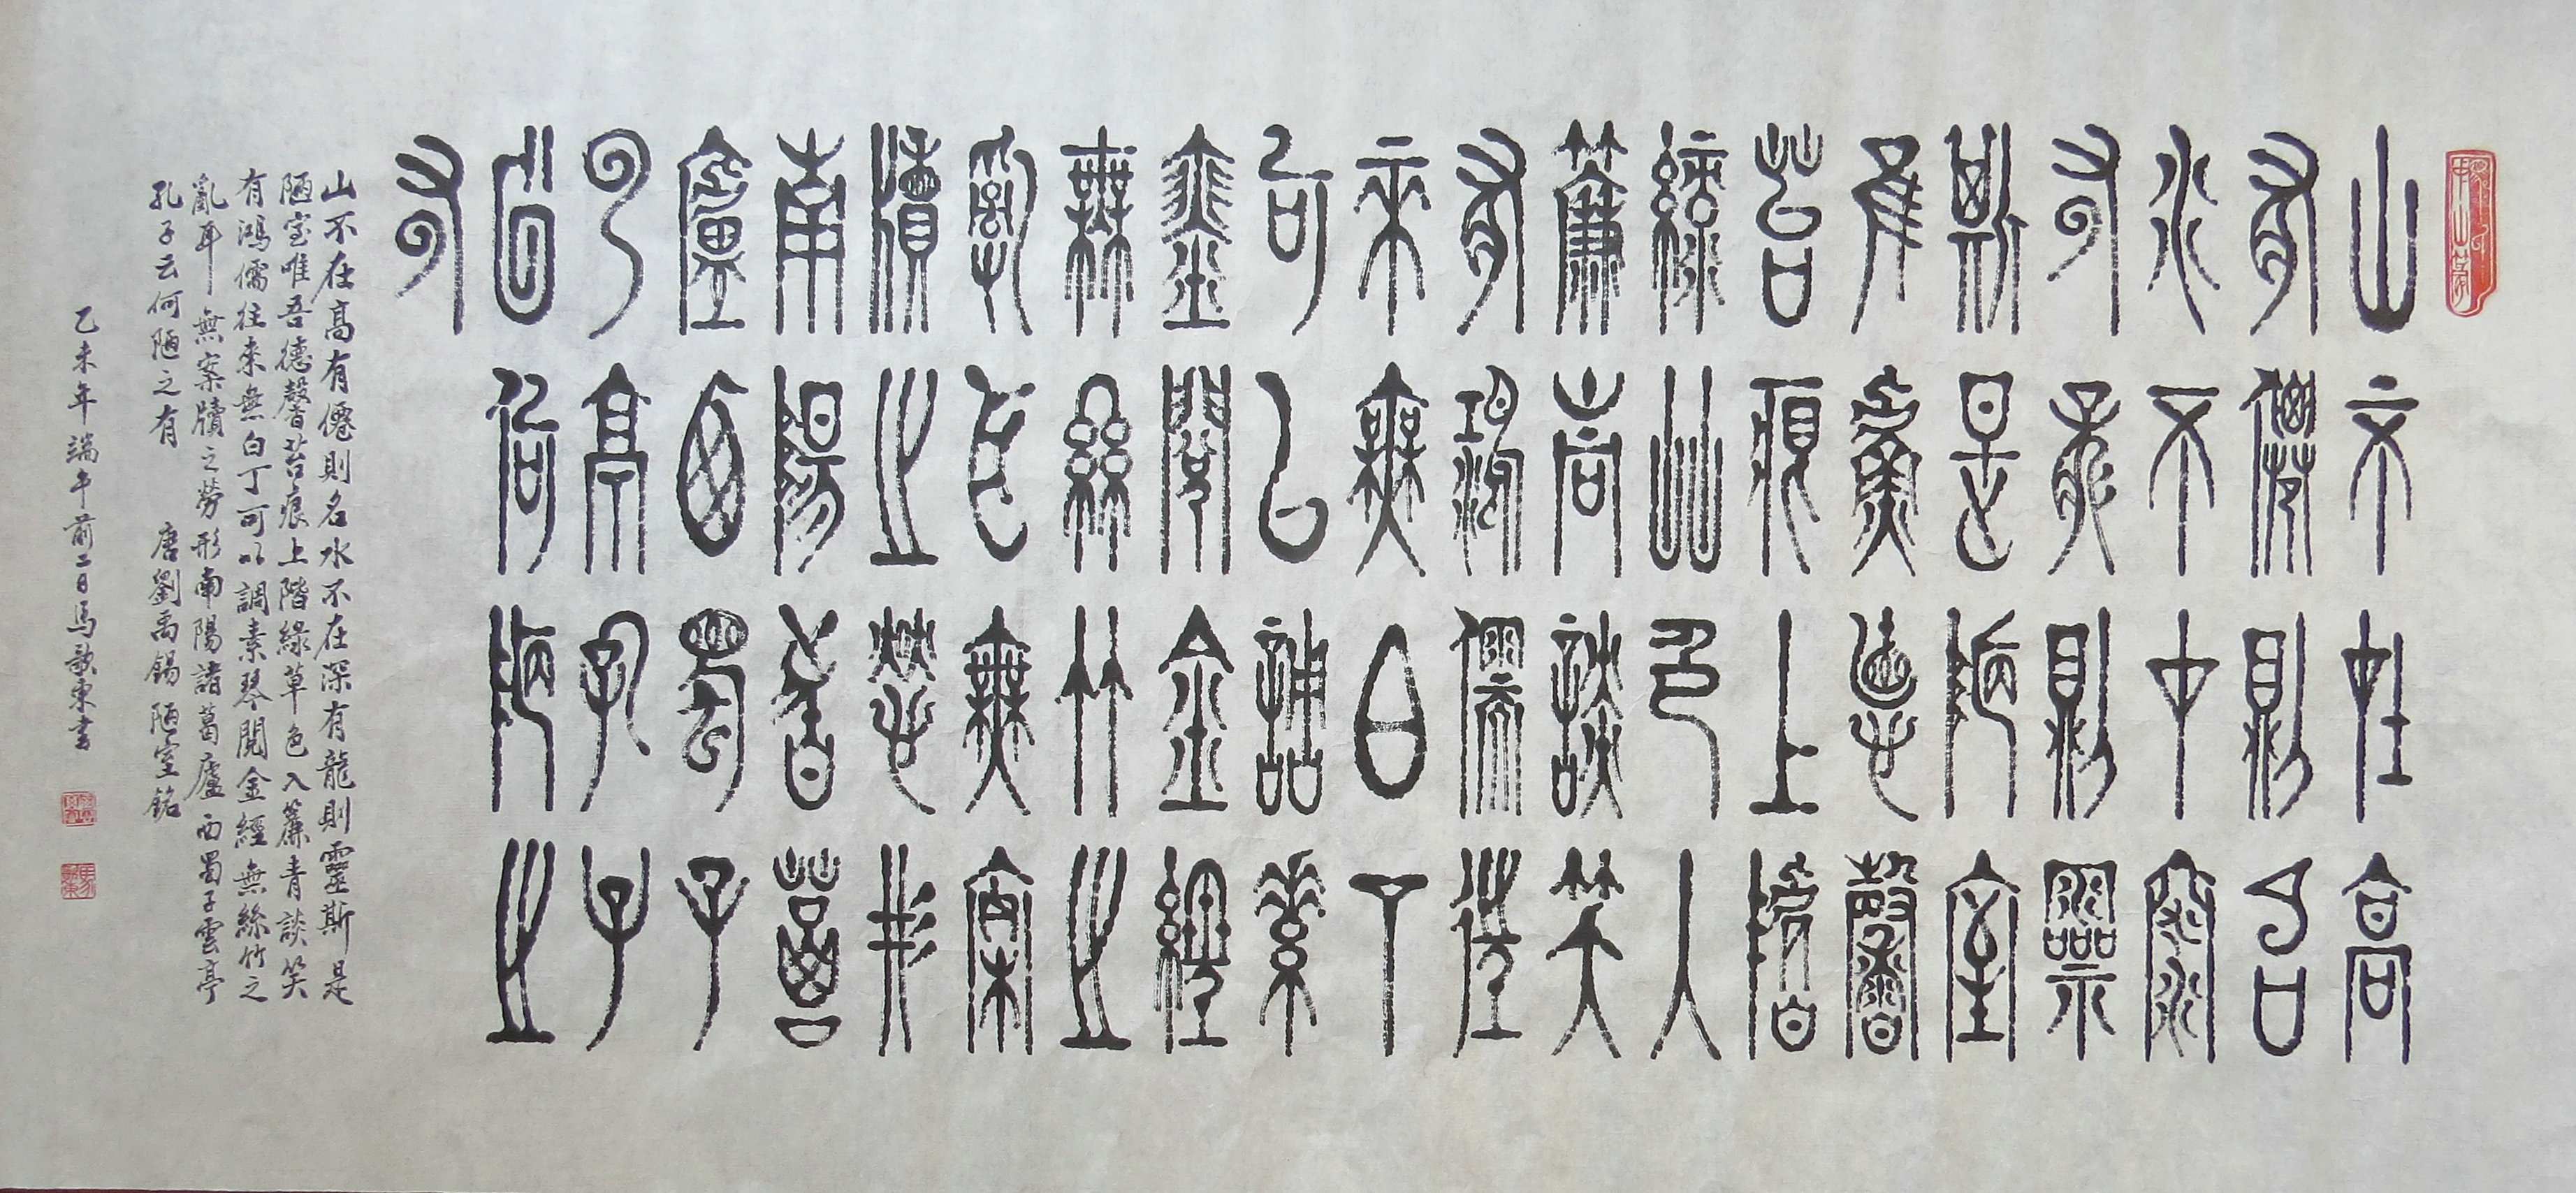 山不在高
有僊則名
水不在深
有龍則靈
斯是陋室
唯吾德馨
苔痕上階
綠艸色入
簾青談笑
有鴻儒往
來無白丁
可以調素
琴閱金經
無絲竹之
亂耳無案
牘之勞形
南陽諸葛
廬西蜀子
雲亭孔子
云何陋之
有
山不在高有僊則名水不在深有龍則靈斯是
陋室唯吾德馨苔痕上階綠草色入簾青談笑
有鴻儒往來無白丁可以調素琴閱金經無絲竹之
亂耳無案牘之勞形南陽諸葛廬西蜀子雲亭
孔子云何陋之有 唐劉禹錫陋室銘
乙未年端午前二日馬歌東書